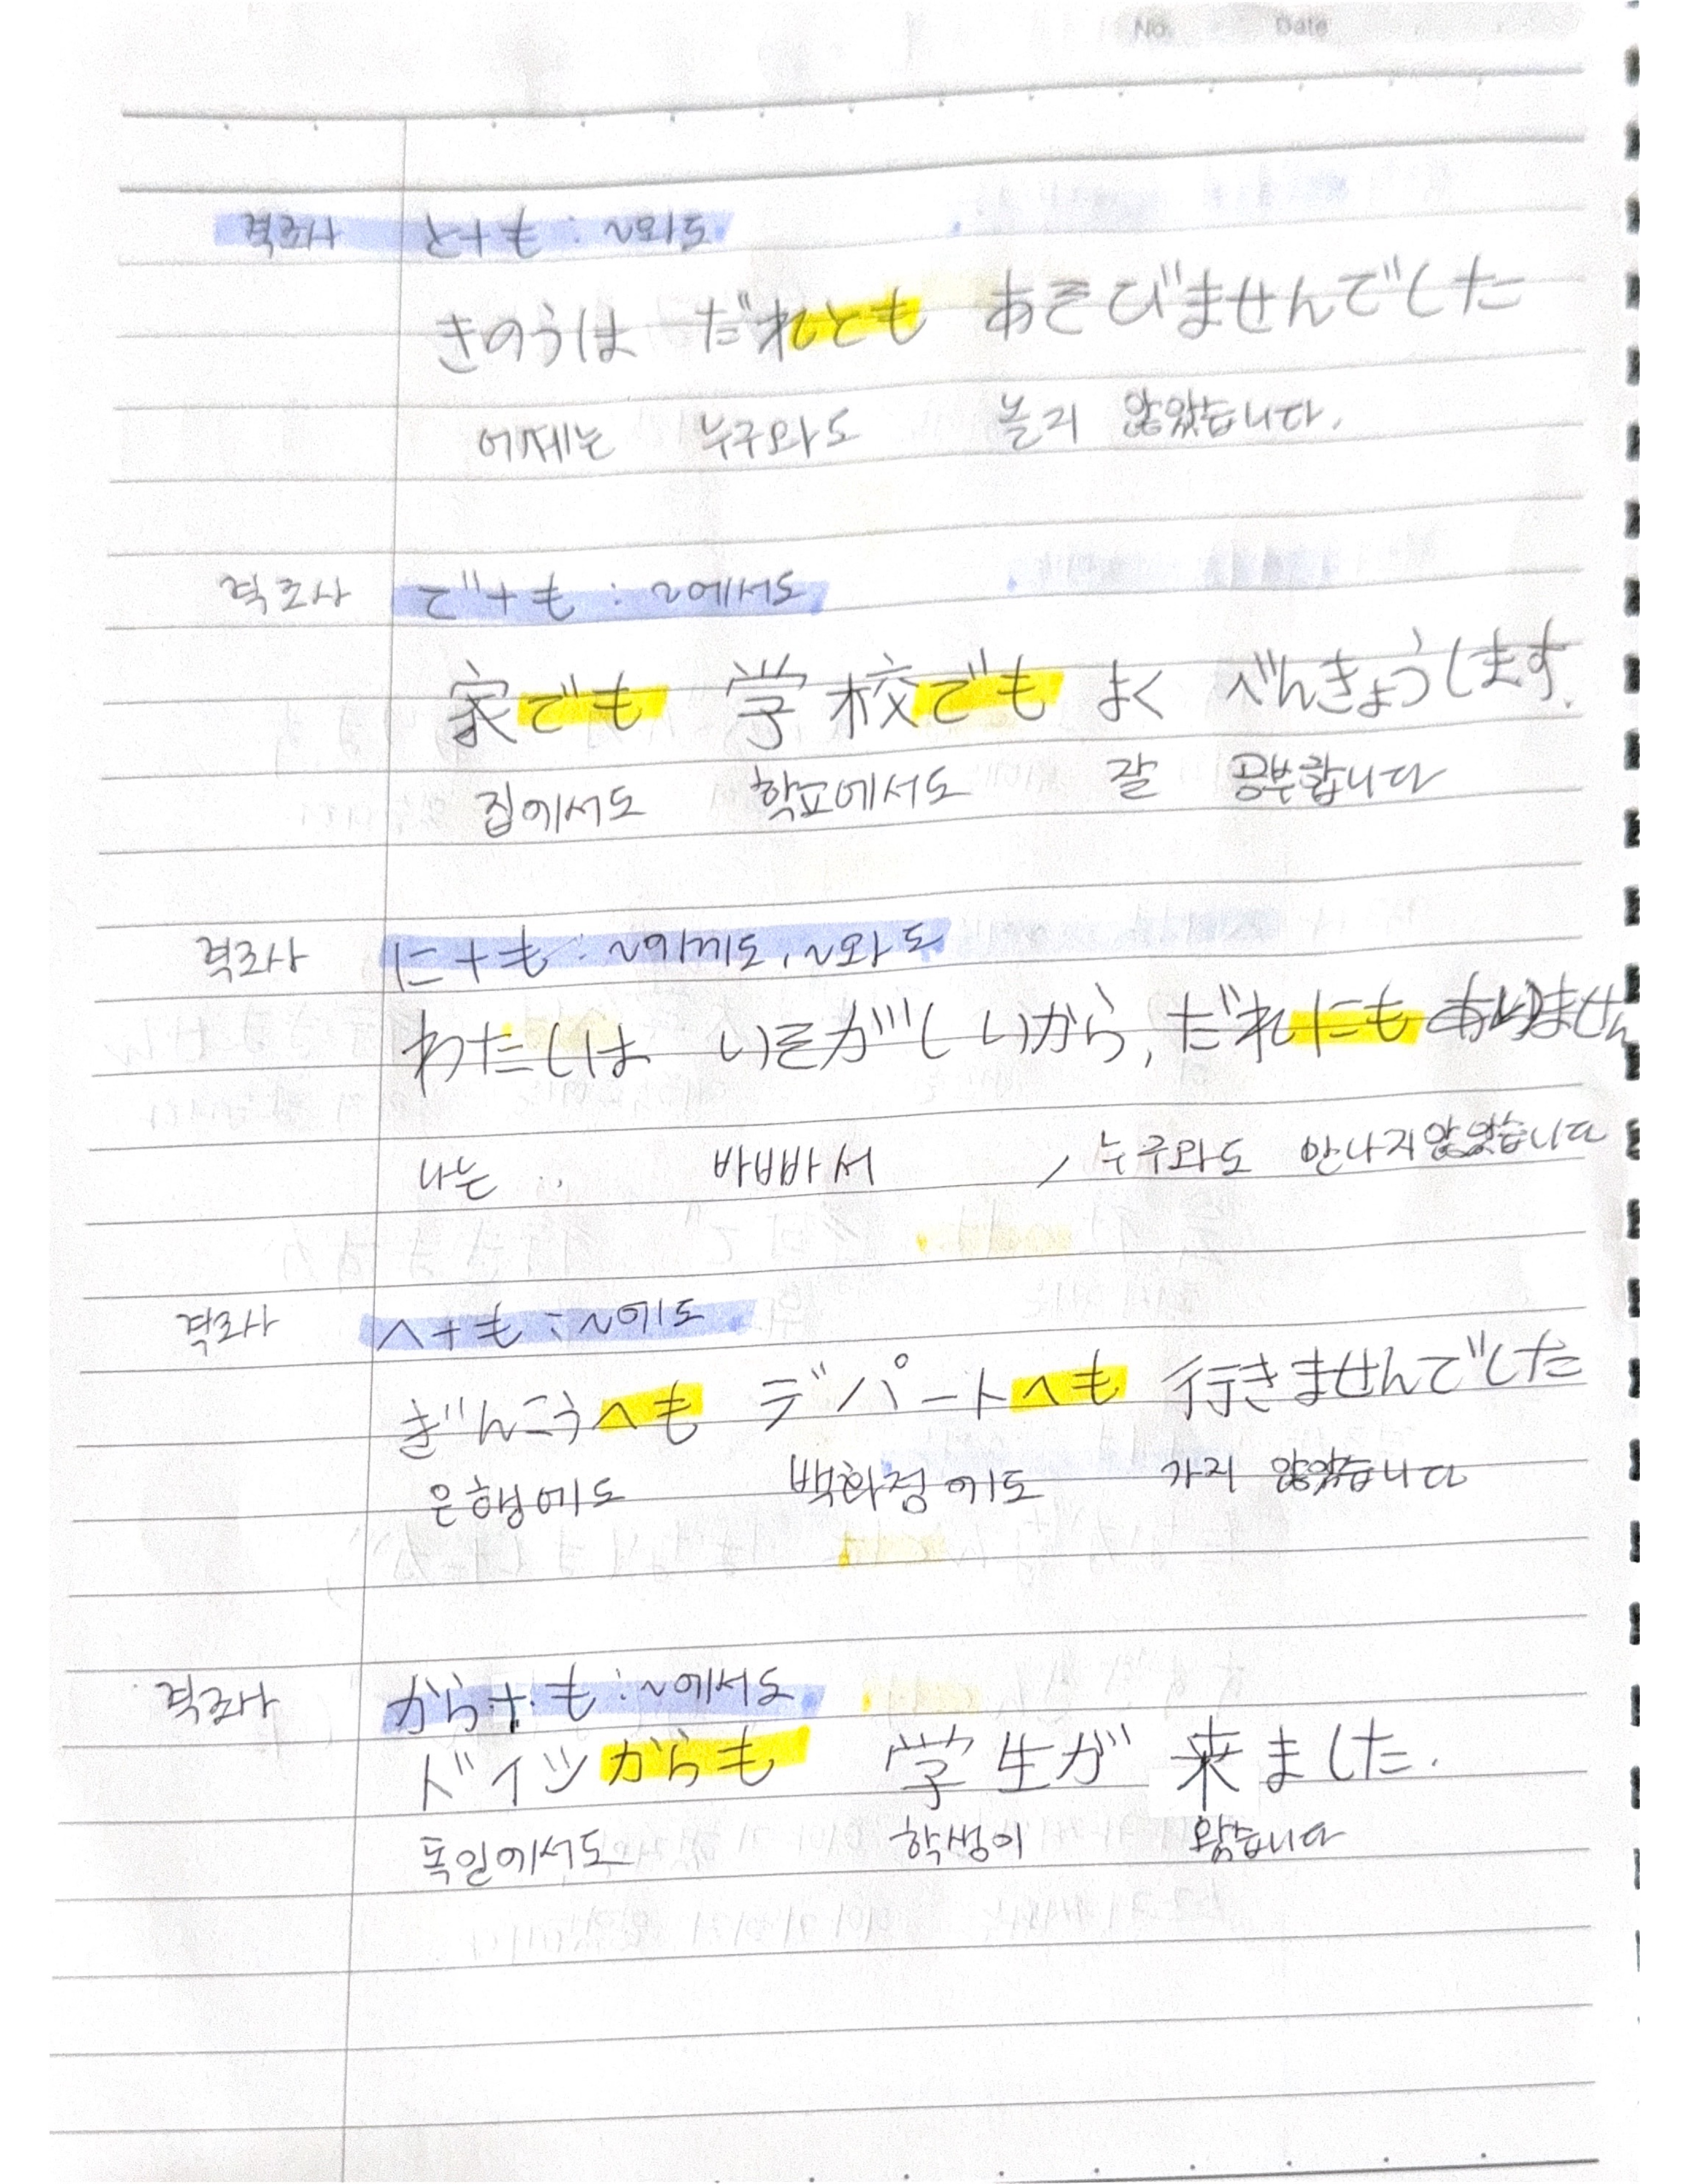 No. Date
격조사 と+も : ~와도
きのうは だれとも あそびませんでした
어제는 누구와도 놀지 않았습니다.
격조사 で+も : ~에서도
家でも 学校でも よく べんきょうします.
집에서도 학교에서도 잘 공부합니다
격조사 に+も : ~에게도, ~와도
わたしは いそがしいから, だれにも ありません
나는 바빠서, 누구와도 만나지않았습니다
격조사 へ+も : ~에도
ぎんこうへも デパートへも 行きませんでした
은행에도 백화점에도 가지 않았습니다
격조사 から+も : ~에서도
ドイツからも 学生が 来ました.
독일에서도 학생이 왔습니다